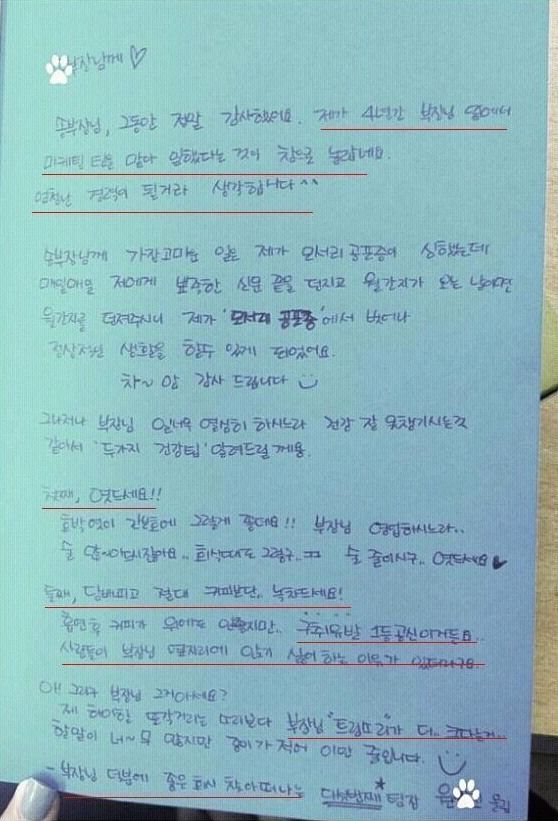 부장님께♡
송부장님, 그동안 정말 감사했어요. 제가 4년간 부장님 옆에서
마케팅 팀을 맡아 일했다는 것이 참으로 놀랍네요.
엄청난 경력이 될거라 생각합니다^^
송부장님께 가장고마운 일은 제가 모서리 공포증이 심했는데
매일매일 저에게 뾰족한 신문 끝을 던지고 월간지가 오는 날이면
월간지를 던져주시니 제가 '모서리 공포증'에서 벗어나
정상적인 생활을 할수 있게 되었어요.
차~암 감사 드립니다
그나저나 부장님 일너무 열심히 하시느라 건강 잘 못챙기시는것
같아서 '두가지 건강팁' 알려드릴께용.
첫째, 엿드세요!!
호박엿이 간보호에 그렇게 좋데요!! 부장님 영업하시느라..
술 많~아드시잖아요.. 회식때도 그렇구.. ㅋㅋ 술 줄이시구.. 엿드세요♥
둘째, 담배피고 절대 커피보단.. 녹차드세요!
흡연후 커피가 위에도 안좋지만.. 구취유발 1등공신이거든요..
사람들이 부장님 옆자리에 앉기 싫어 하는 이유가 있더라구요.
아! 그리구 부장님 그거아세요?
제 하이힐 또각거리는 소리보다 부장님 "트림소리"가 더.. 크다는거..
할말이 너~무 많지만 종이가 적어 이만 줄입니다.
- 부장님 덕분에 좋은회사 찾아떠나는 다섯번째* 팀장 올림